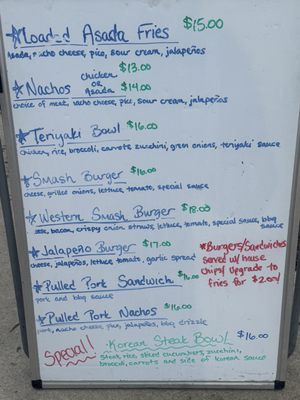 *Loaded Asada Fries $15.00
Asada, nacho cheese, pico, sour cream, jalapeños
*Nachos chicken or Asada $13.00 $14.00
choice of meat, nacho cheese, pico, sour cream, jalapeños
*Teriyaki Bowl $16.00
chicken, rice, broccoli, carrots, zucchini, green onions, teriyaki sauce
*Smash Burger $16.00
cheese, grilled onions, lettuce, tomato, special sauce
*Western Smash Burger $18.00
bacon, crispy onion straws, lettuce, tomato, special sauce, bbq sauce
*Jalapeño Burger $17.00
cheese, jalapeños, lettuce, tomato, garlic spread
*Burgers/Sandwiches
served w/ house
chips/ upgrade to
fries for $2.00/
*Pulled Pork Sandwich $16.00
pork and bbq sauce
*Pulled Pork Nachos $16.00
pork, nacho cheese, pico, jalapeños, bbq drizzle
Special! Korean Steak Bowl $16.00
steak, rice, sliced cucumbers, zucchini,
broccoli, carrots and side of korean sauce